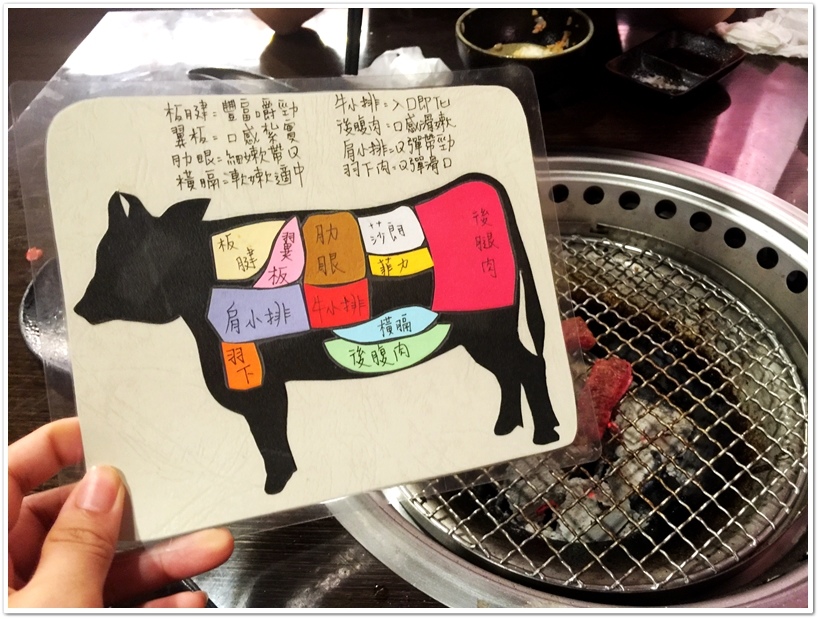 板腱=豐富嚼勁
翼板=口感紮實
肋眼=細嫩帶Q
橫膈=軟嫩適中
牛小排=入口即化
後腹肉=口感滑嫩
肩小排=Q彈帶勁
羽下肉=Q彈滑口
板腱
翼板
肋眼
莎朗
菲力
後腿肉
肩小排
牛小排
橫膈
後腹肉
羽下